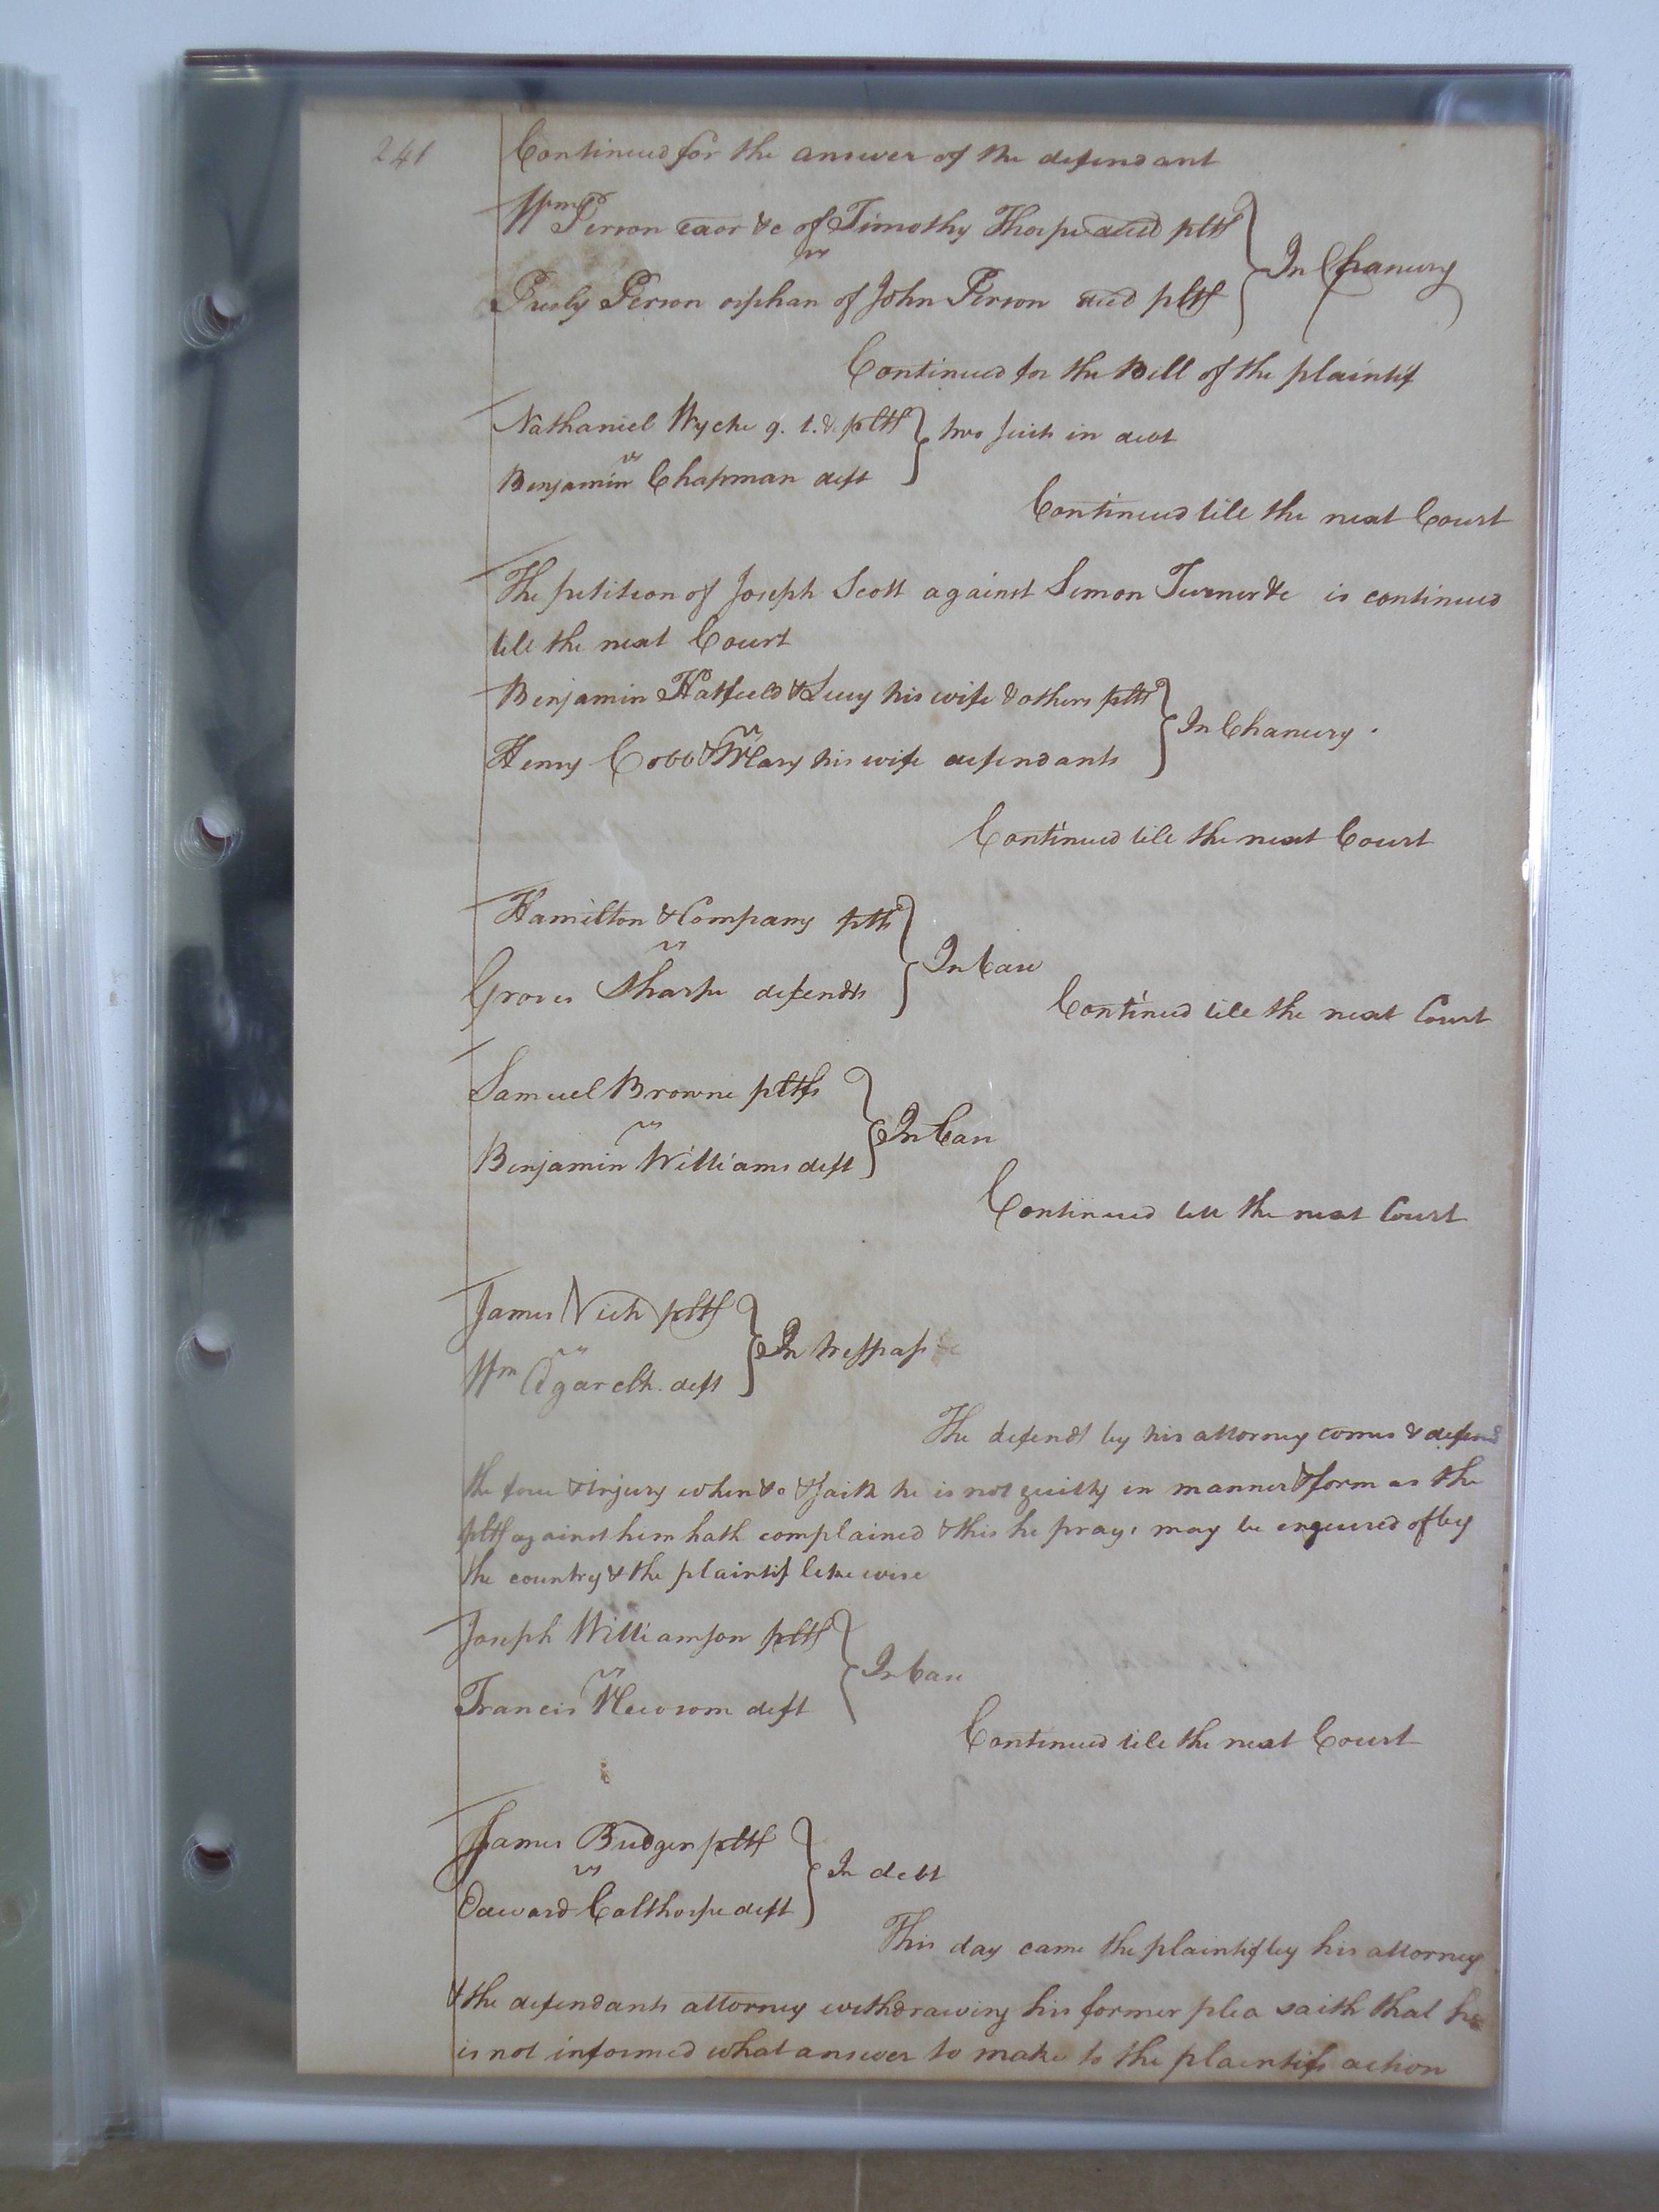 241
Continued for the answer of the defendant
Wm Person exor &c of Timothy Thorpe decd pltf
vs
Person orphan of John Person decd pltf
In Chancery
Continued for the Bill of the plaintif
Nathaniel Wyche g. t. &c pltf
vs
Benjamin Chapman deft
two suits in debt
Continued till the next Court
The petition of Joseph Scott against Simon Turner &c is continued
till the next Court
Benjamin Hatfield & Lucy his wife & others plts
vs
Henry Cobb & Mary his wife defendants
In Chancery.
Continued till the next Court
Hamilton & Company plts
vs
Groves Tharpe defendts
In Case
Continued till the next Court
Samuel Browne pltfs
vs
Benjamin Williams deft
In Case
Continued till the next Court
James Vick pltf
vs
Wm deft
In trespass
The defendt by his attorney comes & defend
the force & injury when &c & saith he is not guilty in manner & form as the
pltf against him hath complained & this he prays may be enquired of by
the country & the plaintif likewise
Joseph Williamson pltf
vs
Francis Newsom deft
In Case
Continued till the next Court
James Bridger pltf
vs
Edward Calthorpe deft
In debt
This day came the plaintif by his attorney
& the defendants attorney withdrawing his former plea saith that he
is not informed what answer to make to the plaintifs action